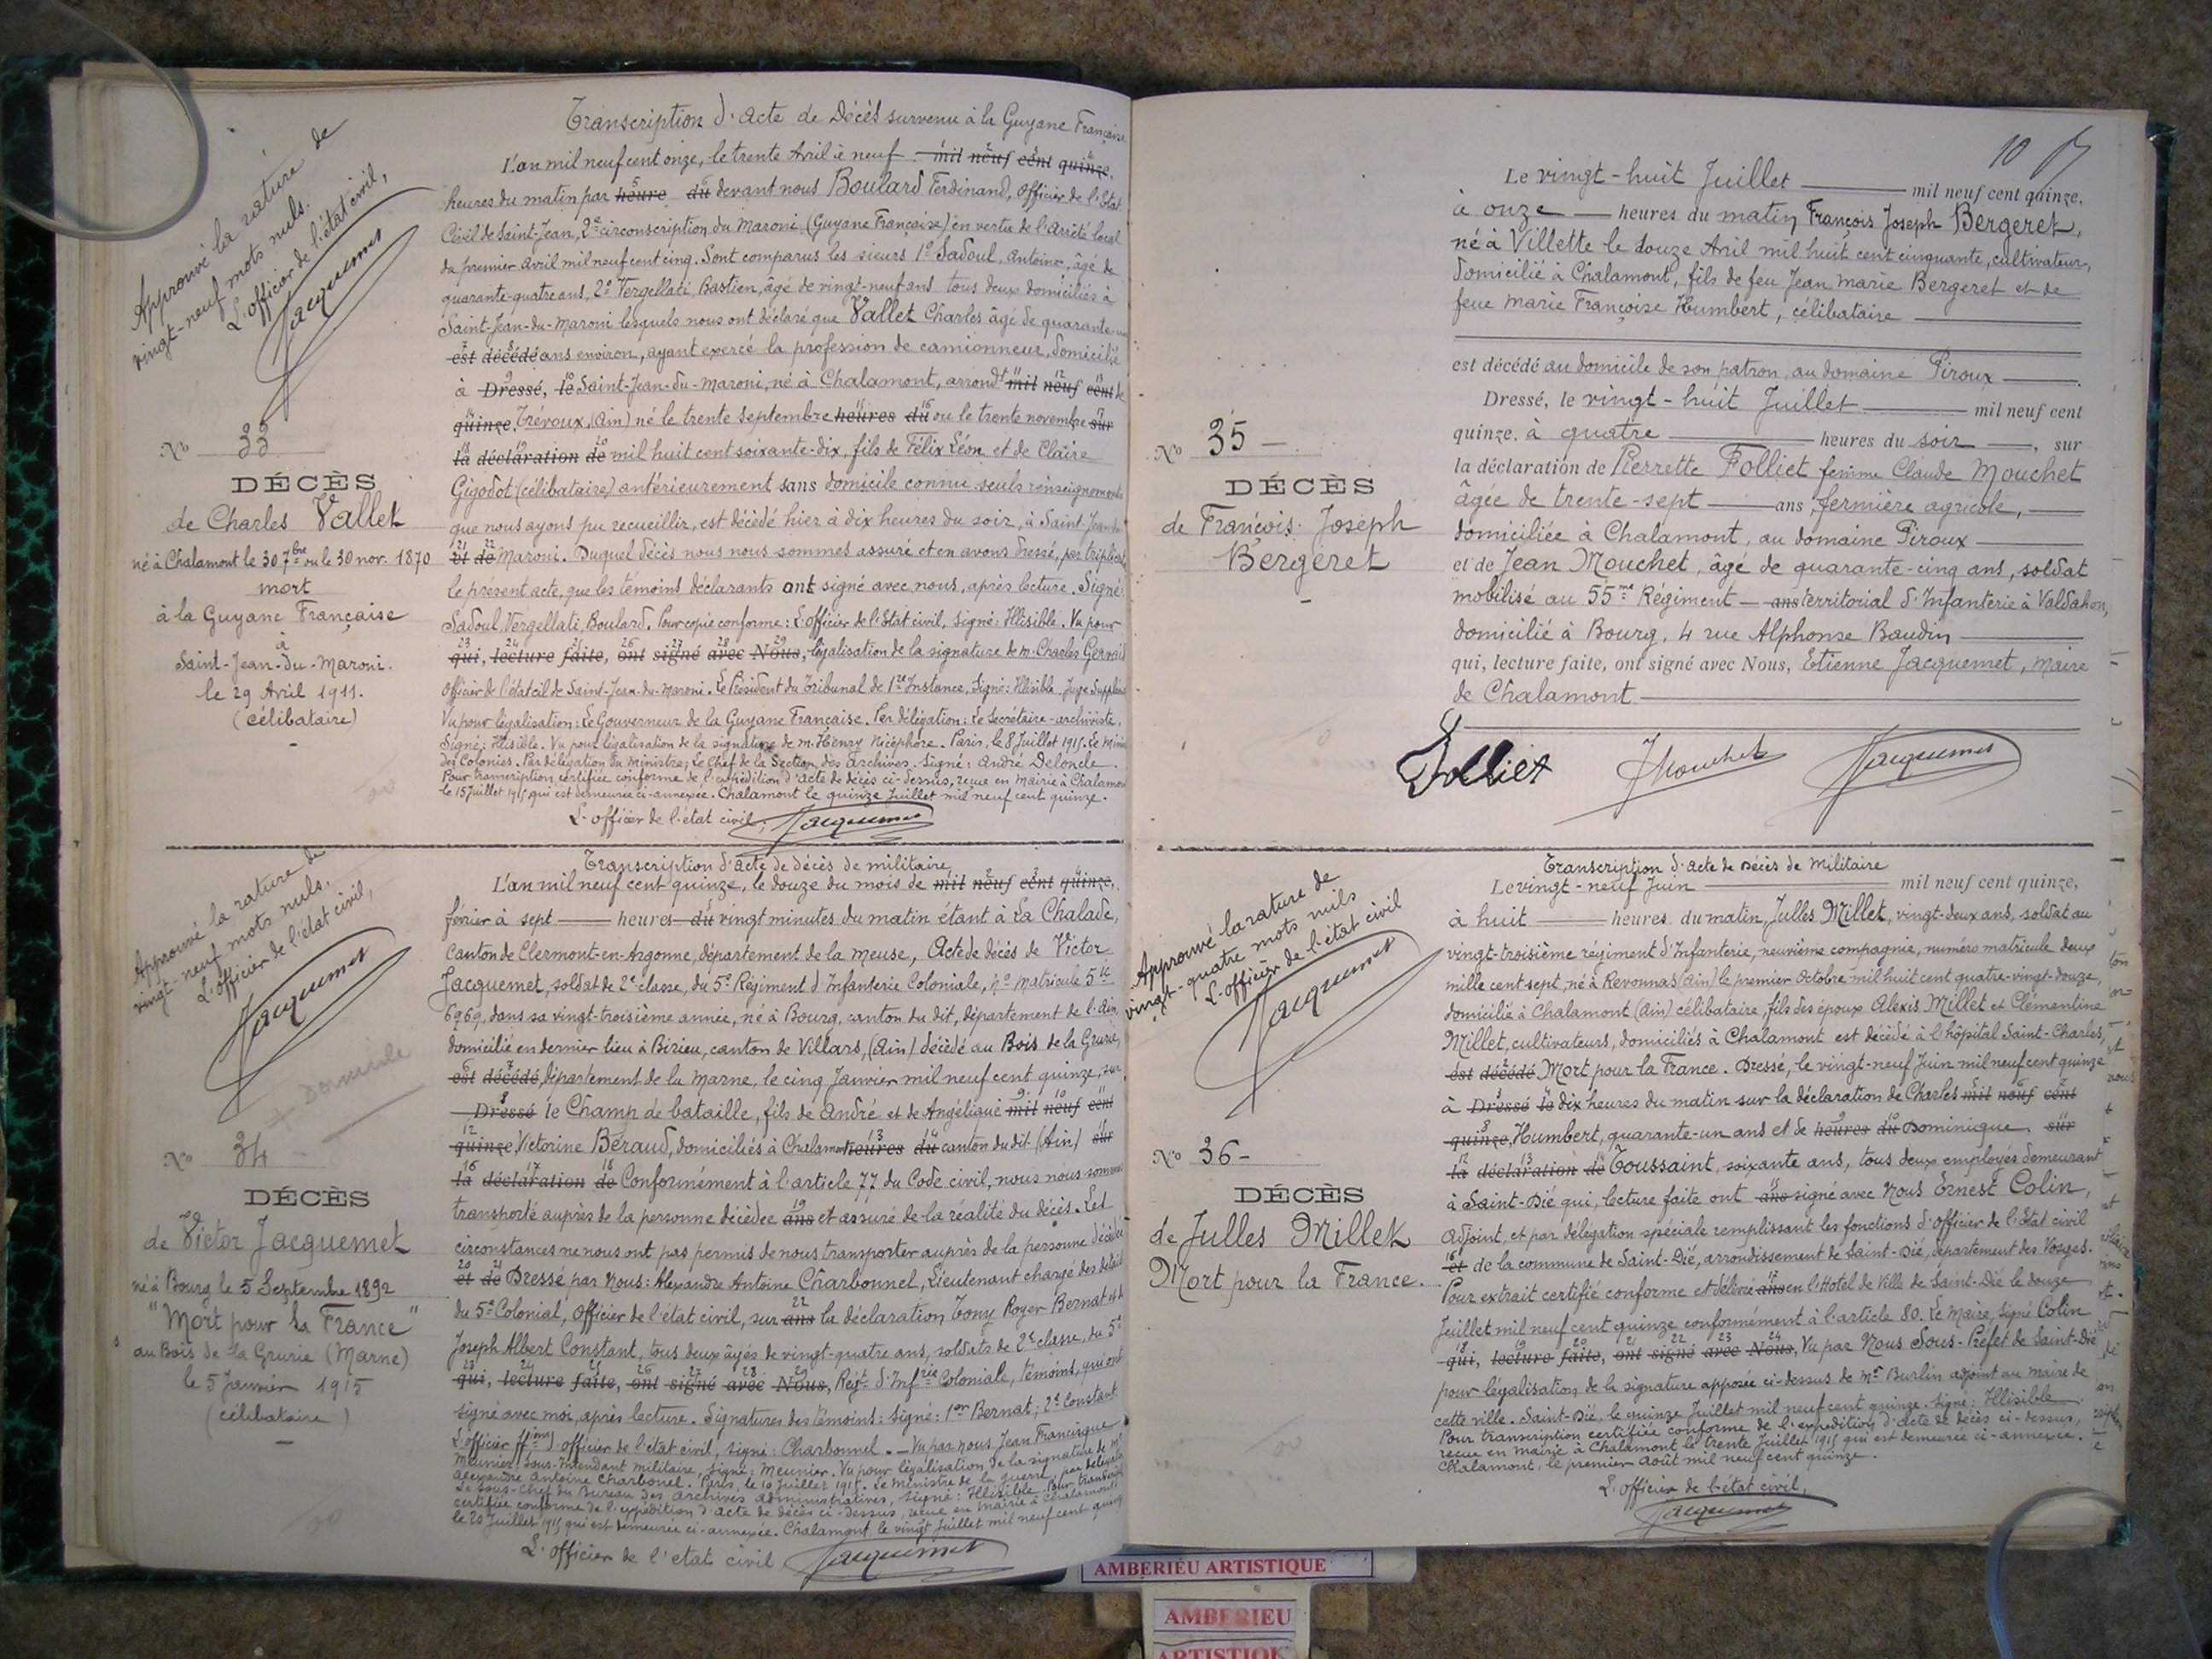 Transcription d'acte de Décès survenu à la Guyane Française
Approuvé la rature de
vingt-neuf mots nuls.
L'officier de l'état civil,
Jacquemet
No 33
DÉCÈS
de Charles Vallet
né à Chalamont le 30 7bre ou le 30 nov. 1870
mort
à la Guyane Française
à
Saint-Jean-du-Maroni.
le 29 Avril 1911.
(célibataire)
L'an mil neuf cent onze, le trente Avril à neuf mil neuf cent quinze,
heures du matin par heure du devant nous Boulard Ferdinand, Officier de l'Etat
Civil de Saint-Jean, 2e circonscription du Maroni (Guyane Française) en vertu de l'Arrêté local
du premier Avril mil neuf cent cinq. Sont comparus les sieurs 1° Sadoul, Antoine, âgé de
quarante-quatre ans, 2° Vergellati, Bastien, âgé de vingt-neuf ans tous deux domiciliés à
Saint-Jean-du-Maroni lesquels nous ont déclaré que Vallet Charles âgé de quarante-un
est décédé ans environ, ayant exercé la profession de camionneur, domicilié
à Dressé, le Saint-Jean-du-Maroni, né à Chalamont, arrondt mil neuf cent de
quinze, Trévoux, (Ain) né le trente septembre heures du ou le trente novembre sur
la déclaration de mil huit cent soixante-dix, fils de Félix Léon et de Claire
Gigodot (célibataire) antérieurement sans domicile connu seuls renseignements
que nous ayons pu recueillir, est décédé hier à dix heures du soir, à Saint-Jean-du
et de Maroni. Duquel décès nous nous sommes assuré et en avons dressé, par triplicata
le présent acte, que les témoins déclarants ont signé avec nous, après lecture. Signé:
Sadoul, Vergellati, Boulard. Pour copie conforme: L'officier de l'Etat civil, signé: Illisible. Vu pour
qui, lecture faite, ont signé avec Nous, légalisation de la signature de m. Charles Gervais
officier de l'état cil de Saint-Jean-du-Maroni. Le Président du Tribunal de 1re Instance, Signé: Illisible. Juge Suppléant
Vu pour légalisation: Le Gouverneur de la Guyane Française. Par délégation: Le Secrétaire-archiviste,
Signé: Illisible. Vu pour légalisation de la signature de m. Henry Nicéphore. Paris, le 8 Juillet 1915. Le Ministre
des Colonies. Par délégation du Ministre; Le Chef de la Section des Archives. Signé: André Deloncle.
Pour transcription certifiée conforme de l'expédition d'acte de décès ci-dessus, reçue en Mairie à Chalamont
le 15 Juillet 1915 qui est demeurée ci-annexée. Chalamont le quinze Juillet mil neuf cent quinze.
L'officier de l'état civil, Jacquemet
Approuvé la rature de
vingt-neuf mots nuls.
L'officier de l'état civil,
Jacquemet
+ Domicile
No 34
DÉCÈS
de Victor Jacquemet
né à Bourg le 5 Septembre 1892
"Mort pour la France"
au Bois de la Grurie (Marne)
le 5 Janvier 1915
(célibataire)
Transcription d'acte de décès de militaire
L'an mil neuf cent quinze, le douze du mois de mil neuf cent quinze,
février à sept heures du vingt minutes du matin étant à La Chalade,
Canton de Clermont-en-Argonne, département de la Meuse, Acte de décès de Victor
Jacquemet, soldat de 2e classe, du 5e Régiment d'Infanterie Coloniale, no matricule 5te
6969, dans sa vingt-troisième année, né à Bourg, canton du dit, département de l'Ain,
domicilié en dernier lieu à Birieu, canton de Villars, (Ain) décédé au Bois de la Grurie,
est décédé, département de la Marne, le cinq Janvier mil neuf cent quinze, sur
Dressé le Champ de bataille, fils de André et de Angélique mil neuf cent
quinze Victorine Béraud, domiciliés à Chalamont heures du canton du dit (Ain) sur
la déclaration de Conformément à l'article 77 du Code civil, nous nous sommes
transporté auprès de la personne décédée ans et assuré de la réalité du décès. Les
circonstances ne nous ont pas permis de nous transporter auprès de la personne décédée
et de Dressé par Nous: Alexandre Antoine Charbonnel, Lieutenant chargé des détails
du 5e Colonial, Officier de l'état civil, sur ans la déclaration Tony Royer Bernat et de
Joseph Albert Constant, tous deux âgés de vingt-quatre ans, soldats de 2e classe, du 5e
qui, lecture faite, ont signé avec Nous, Régt d'Infrie Coloniale, témoins, qui ont
signé avec moi, après lecture. Signatures des témoins: Signé: 1er Bernat; 2e Constant
L'officier officier de l'état civil, signé: Charbonnel. — Vu par nous Jean Francisque
Meunier, sous-Intendant militaire, signé: Meunier. Vu pour légalisation de la signature de m.
Alexandre Antoine Charbonel. Paris, le 10 Juillet 1915. Le Ministre de la guerre, par délégation
Le Sous-Chef du Bureau des Archives administratives, signé: Illisible. Pour transcription
certifiée conforme de l'expédition d'acte de décès ci-dessus, reçue en Mairie à Chalamont
le 20 Juillet 1915 qui est demeurée ci-annexée. Chalamont, le vingt Juillet mil neuf cent quinze
L'officier de l'état civil Jacquemet
10
No 35
DÉCÈS
de François Joseph
Bergeret
Le vingt-huit Juillet mil neuf cent quinze,
à onze heures du matin François Joseph Bergeret,
né à Villette le douze Avril mil huit cent cinquante, cultivateur,
domicilié à Chalamont, fils de feu Jean Marie Bergeret et de
feue Marie Françoise Humbert, célibataire
est décédé au domicile de son patron, au domaine Piroux
Dressé, le vingt-huit Juillet mil neuf cent
quinze. à quatre heures du soir, sur
la déclaration de Pierrette Folliet femme Claude Mouchet
âgée de trente-sept ans, fermière agricole,
domiciliée à Chalamont, au domaine Piroux
et de Jean Mouchet, âgé de quarante-cinq ans, soldat
mobilisé au 55me Régiment ans territorial d'Infanterie à Valdahon,
domicilié à Bourg, 4 rue Alphonse Baudin
qui, lecture faite, ont signé avec Nous, Etienne Jacquemet, Maire
de Chalamont
Folliet JMouchet Jacquemet
Approuvé la rature de
vingt-quatre mots nuls
L'officier de l'état civil
Jacquemet
No 36
DÉCÈS
de Julles Millet
Mort pour la France.
Transcription d'acte de décès de Militaire
Le vingt-neuf Juin mil neuf cent quinze,
à huit heures du matin, Julles Millet, vingt-deux ans, soldat au
vingt-troisième régiment d'Infanterie, neuvième compagnie, numéro matricule deux
mille cent sept, né à Revonnas (Ain) le premier Octobre mil huit cent quatre-vingt-douze,
domicilié à Chalamont (Ain) célibataire, fils des époux Alexis Millet et Clémentine
Millet, cultivateurs, domiciliés à Chalamont est décédé à l'hôpital Saint-Charles,
est décédé Mort pour la France. Dressé, le vingt-neuf Juin mil neuf cent quinze
à Dressé le dix heures du matin sur la déclaration de Charles mil neuf cent
quinze, Humbert, quarante-un ans et de heures du Dominique sur
la déclaration de Toussaint, soixante ans, tous deux employés demeurant
à Saint-Dié qui, lecture faite ont ans signé avec Nous Ernest Colin,
Adjoint, et par délégation spéciale remplissant les fonctions d'Officier de l'Etat civil
et de la commune de Saint-Dié, arrondissement de Saint-Dié, département des Vosges.
Pour extrait certifié conforme et délivré ans en l'Hotel de Ville de Saint-Dié le douze
Juillet mil neuf cent quinze conformément à l'article 80. Le Maire, signé Colin
qui, lecture faite, ont signé avec Nous, Vu par Nous Sous-Préfet de Saint-Dié
pour légalisation de la signature apposée ci-dessus de Mr Burlin adjoint au maire de
cette ville. Saint-Dié, le quinze Juillet mil neuf cent quinze. Signé: Illisible
Pour transcription certifiée conforme de l'expédition d'acte de décès ci-dessus,
reçue en Mairie à Chalamont le trente Juillet 1915 qui est demeurée ci-annexée.
Chalamont, le premier Août mil neuf cent quinze.
L'officier de l'état civil,
Jacquemet
AMBERIEU ARTISTIQUE
AMBERIEU
ARTISTIQUE